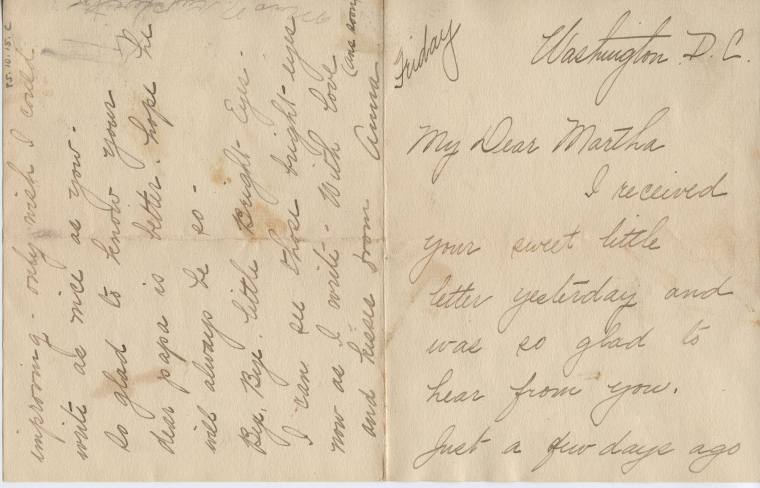 Friday
Washington D.C.
My Dear Martha
I received
your sweet little
letter yesterday and
was so glad to
hear from you.
Just a few days ago
improving - only wish I could
write as nice as you -
So glad to know your
dear papa is better - hope he
will always be so -
Bye, Bye, little Bright-Eyes -
I can see those bright-eyes
now as I write - With love
and kisses from Anna
(ans soon
75.10.15.c